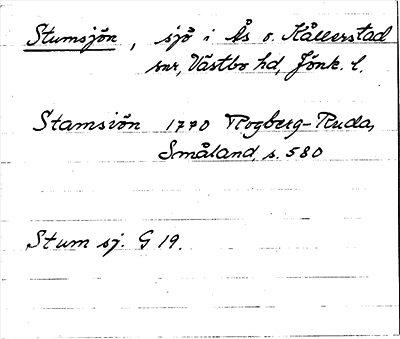 Stumsjön, sjö i Ås o. Kållerstad
snr, Västbo hd, Jönk. l.
Stamsiön 1770 Rogberg-Ruda,
Småland, s. 580
Stum sj. G 19.